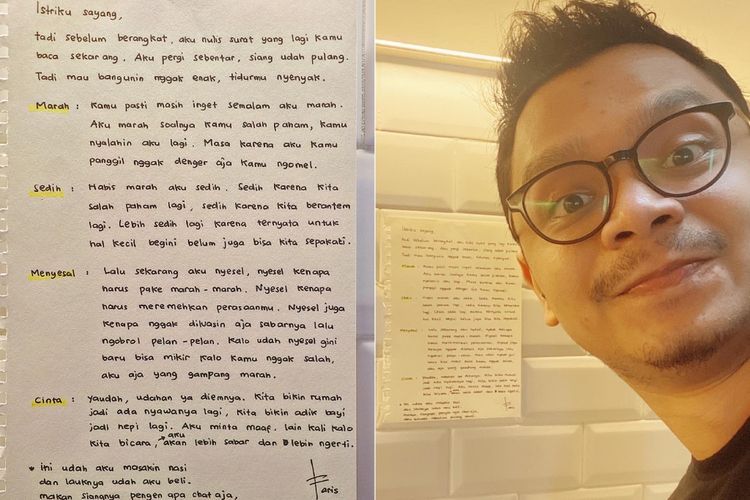 Istriku sayang,
tadi sebelum berangkat, aku nulis surat yang lagi kamu
baca sekarang. Aku pergi sebentar, siang udah pulang.
Tadi mau bangunin nggak enak, tidurmu nyenyak.
Marah : Kamu pasti masih inget semalam aku marah.
Aku marah soalnya kamu salah paham, kamu
nyalahin aku lagi. Masa karena aku kamu
panggil nggak denger aja kamu ngomel.
Sedih : Habis marah aku sedih. Sedih karena kita
salah paham lagi, sedih karena kita berantem
lagi. Lebih sedih lagi karena ternyata untuk
hal kecil begini belum juga bisa kita sepakati.
Menyesal : Lalu sekarang aku nyesel, nyesel kenapa
harus pake marah-marah. Nyesel kenapa
harus meremehkan perasaanmu. Nyesel juga
kenapa nggak diluasin aja sabarnya lalu
ngobrol pelan-pelan. Kalo udah nyesel gini
baru bisa mikir kalo kamu nggak salah,
aku aja yang gampang marah.
Cinta : Yaudah, udahan ya diemnya. Kita bikin rumah
jadi ada nyawanya lagi, kita bikin adik bayi
jadi hepi lagi. Aku minta maaf. lain kali kalo
kita bicara, aku akan lebih sabar dan lebih ngerti.
* Ini udah aku masakin nasi
dan lauknya udah aku beli.
makan siangnya pengen apa chat aja,
Faris